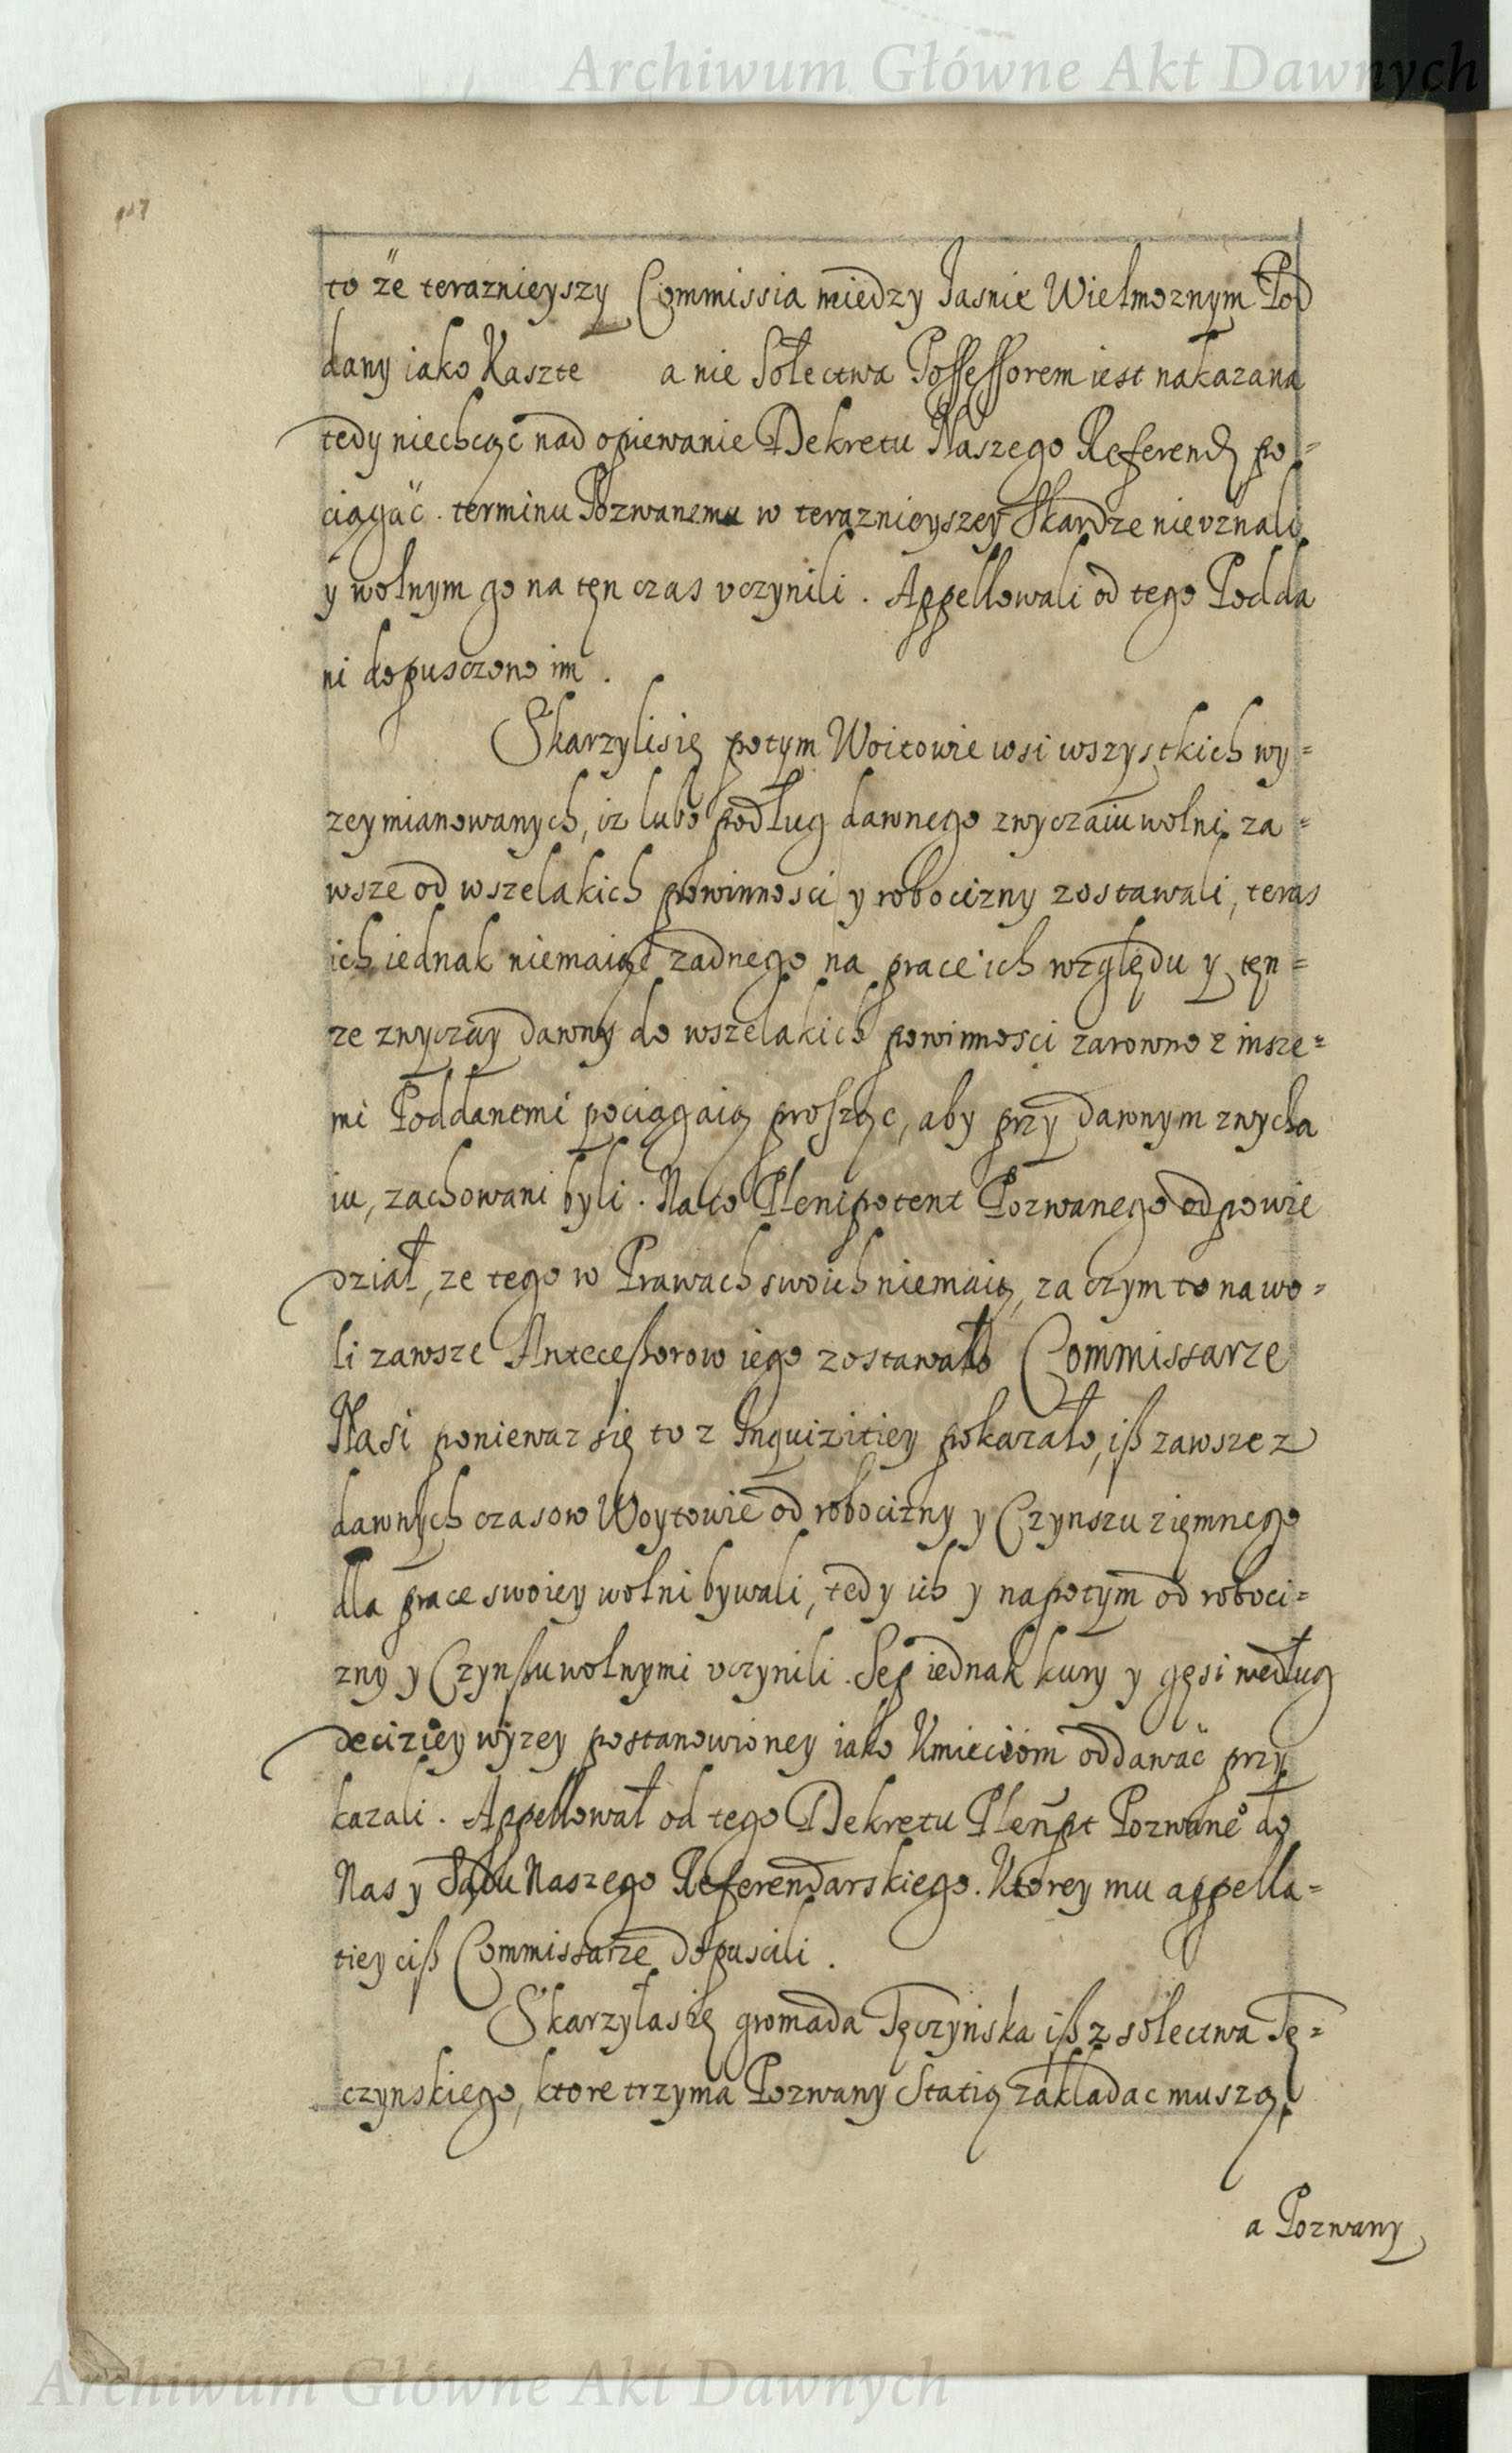 Archiwum Główne Akt Dawnych
to że teraznieyszy Commissia między Jasnie Wielmoznym Pod
dany iako Kaszte a nie Sołectwa Possessorem iest nakazana
tedy niechcąć nad opiewanie Dekretu Naszego Referend po=
ciągać. terminu Pozwanemu w teraznieyszey Skardze nievznali
y wolnym go na tęn czas vczynili. Appellowali od tego Podda
ni dopusczono im.
Skarzylisię potym Woitowie wsi wszystkich wy=
zeymianowanych, iz lubo podług dawnego zwyczaiu wolni za=
wsze od wszelakich powinnosci y robocizny zostawali, teras
ich iednak niemaiąć zadnego na prace ich względu y tęn=
ze zwyczay dawny do wszelakich powinnosci zarowno z insze=
mi Poddanemi pociągaią prosząc, aby przy dawnym zwycza
iu, zachowani byli. Na to Plenipotent Pozwanego odpowie
dział, ze tego w Prawach swoich niemaią, za czym to na wo=
li zawsze Antecessorow iego zostawało Commissarze
Nasi poniewaz się to z Inquizitiey pokazało, iß zawsze z
dawnych czasow Woytowie od robocizny y Czynszu ziemnego
dla prace swoiey wolni bywali, tedy ich y napotym od roboci=
zny y Czynßu wolnymi vczynili. Sep iednak kury y gęsi według
deciziey wyzey postanowioney iako Kmieciom oddawać przy
kazali. Appellował od tego Dekretu Plenpt Pozwane° do
Nas y Sądu Naszego Referendarskiego. Ktorey mu appella=
tiey ciß Commissarze dopuscili.
Skarzyłasię gromada Tęczyńska iß z sołectwa Tę=
czynskiego, ktore trzyma Pozwany Statią zakładac muszą,
a Pozwany
Archiwum Główne Akt Dawnych